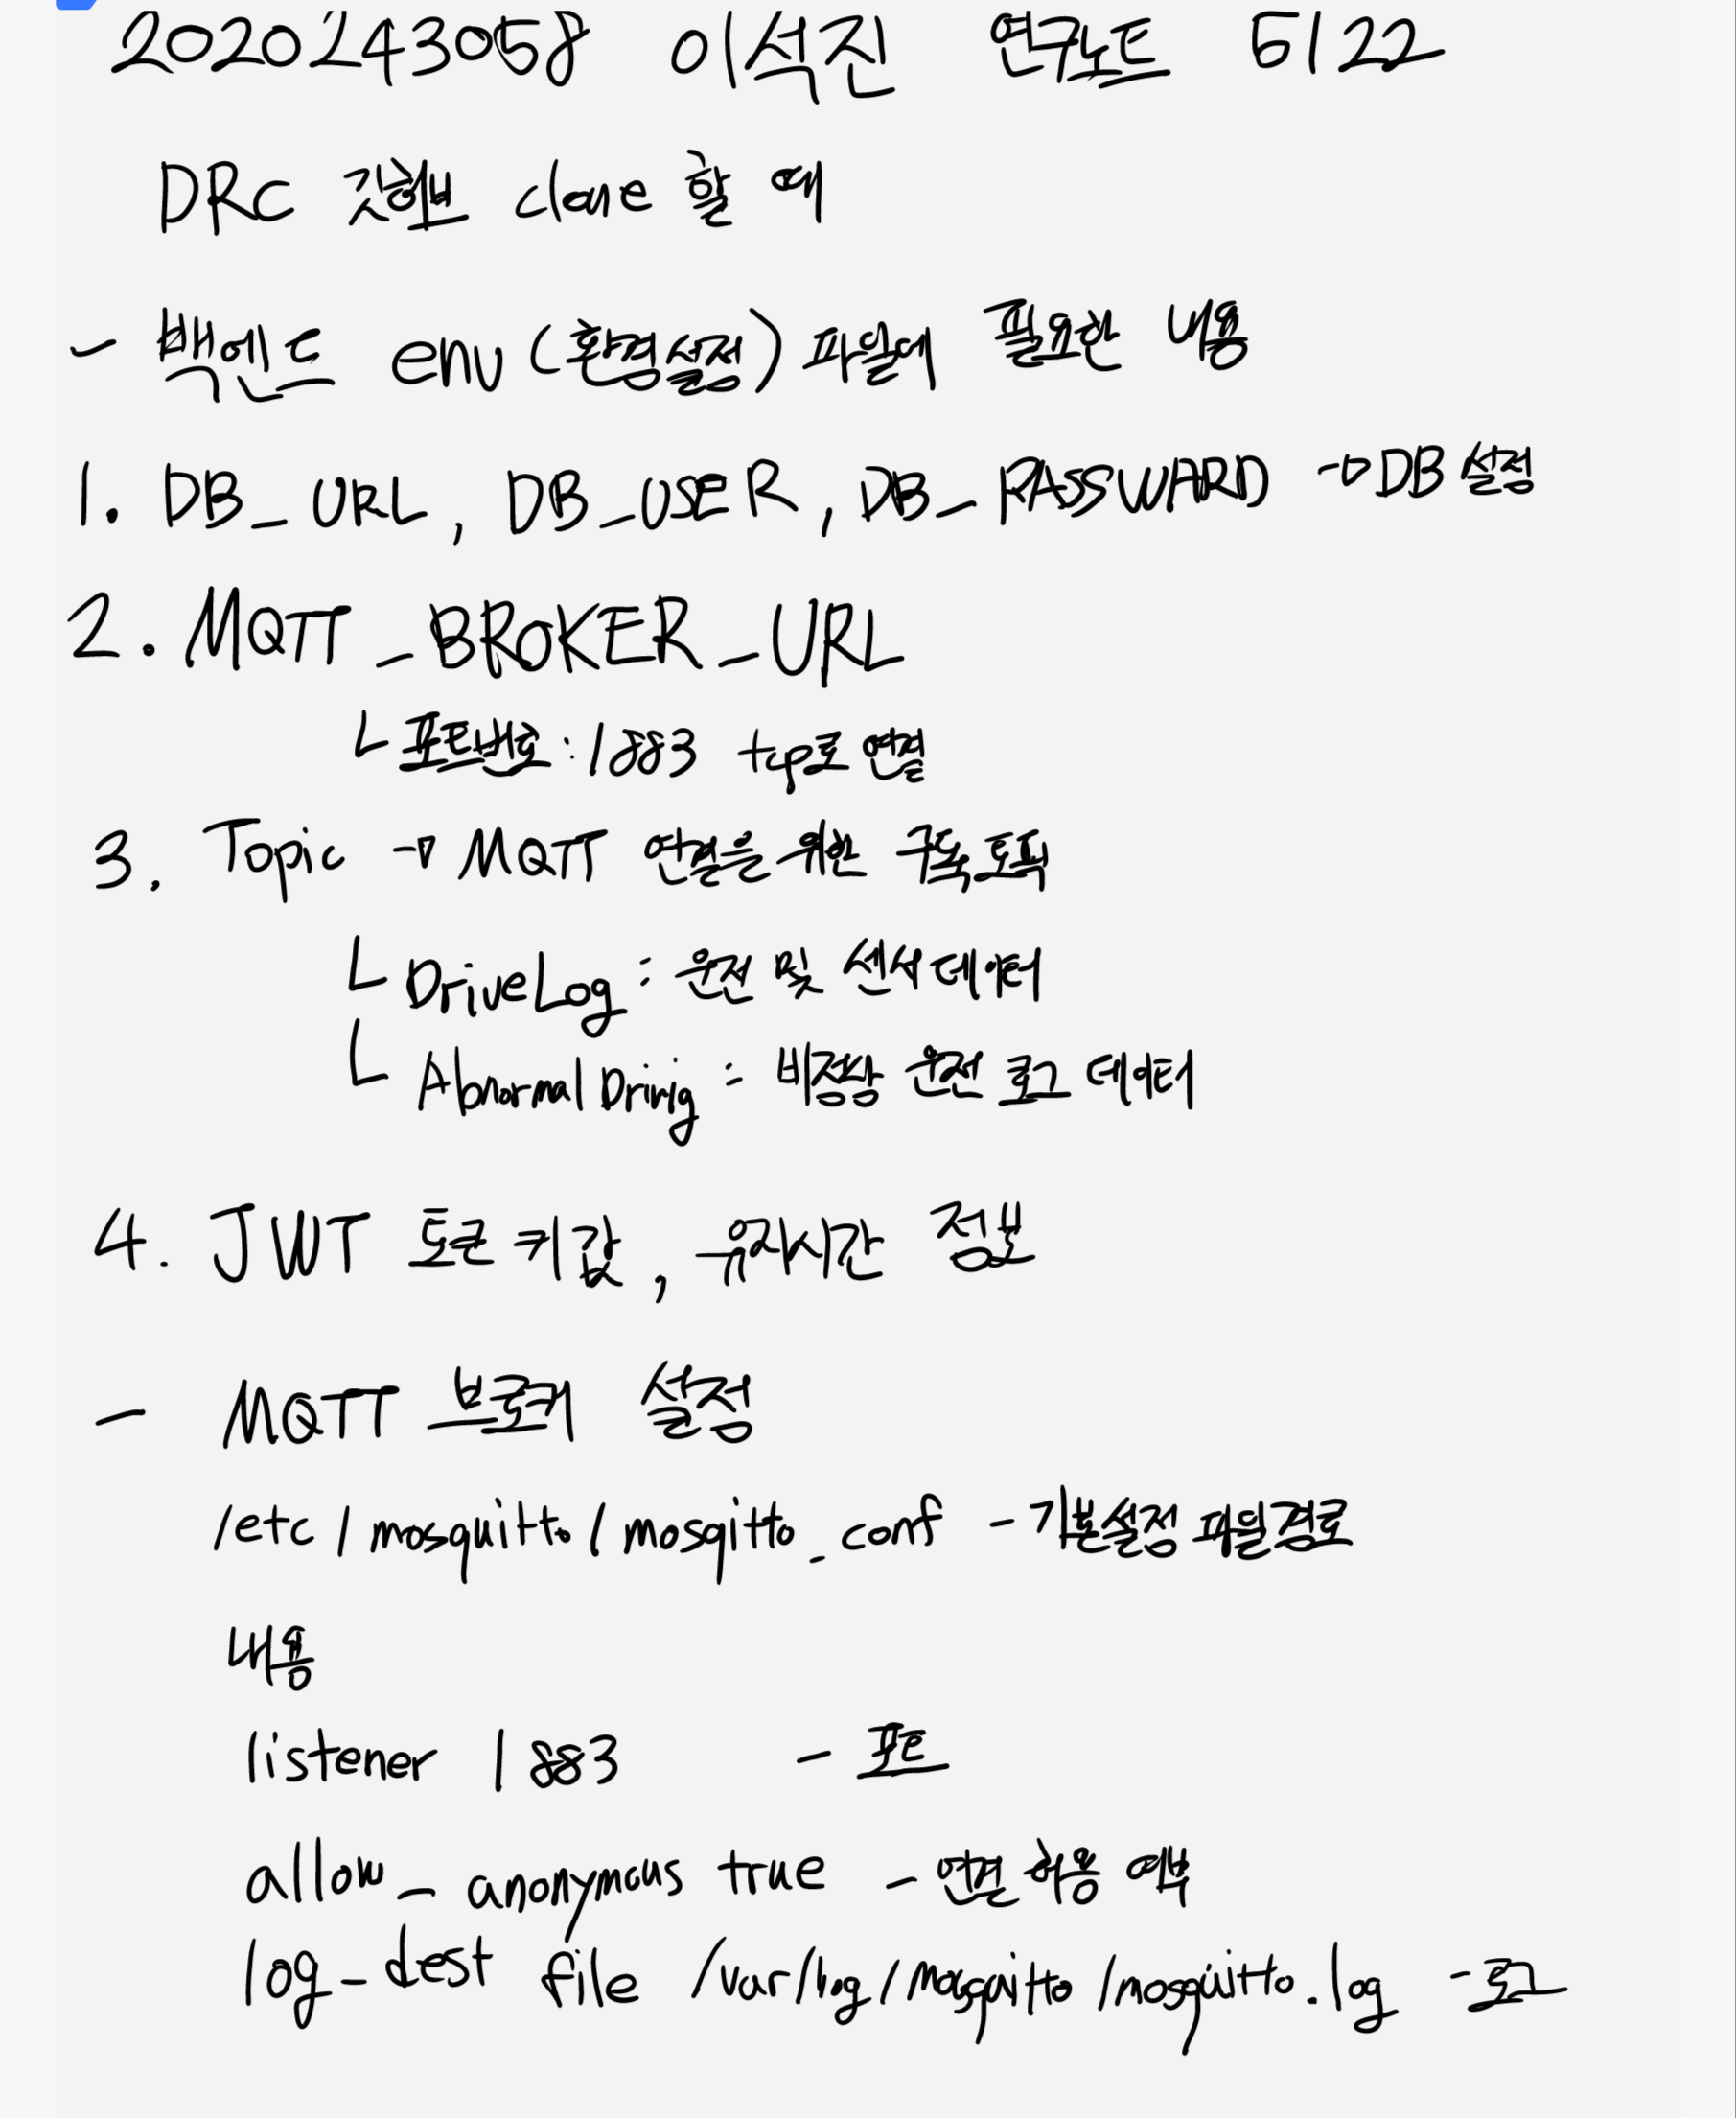 2020243058 이석진 연구노트 5/22
DRC 깃허브 clone 할 때
- 백엔드 env (환경설정) 파일에 필요한 내용
1. DB_URL, DB_USER, DB_PASSWARD → DB 설정
2. MQTT_BROKER_URL
ㄴ 포트번호 : 1883 tcp로 연결
3. Topic → MQTT 연결을 위한 구독 토픽
ㄴ DriveLog : 운전 및 센서 데이터
ㄴ Abnormal Drivig : 비정상 운전 로그 데이터
4. JWT 토큰 키값, 유지시간 정보
- MQTT 브로커 설정
/etc/mosquitto/mosqitto.conf - 기본설정 파일 경로
내용
listener 1883 - 포트
allow_anonymous true - 연결 허용 여부
log_dest file /var/log/mosquitto/mosquitto.log - 로그